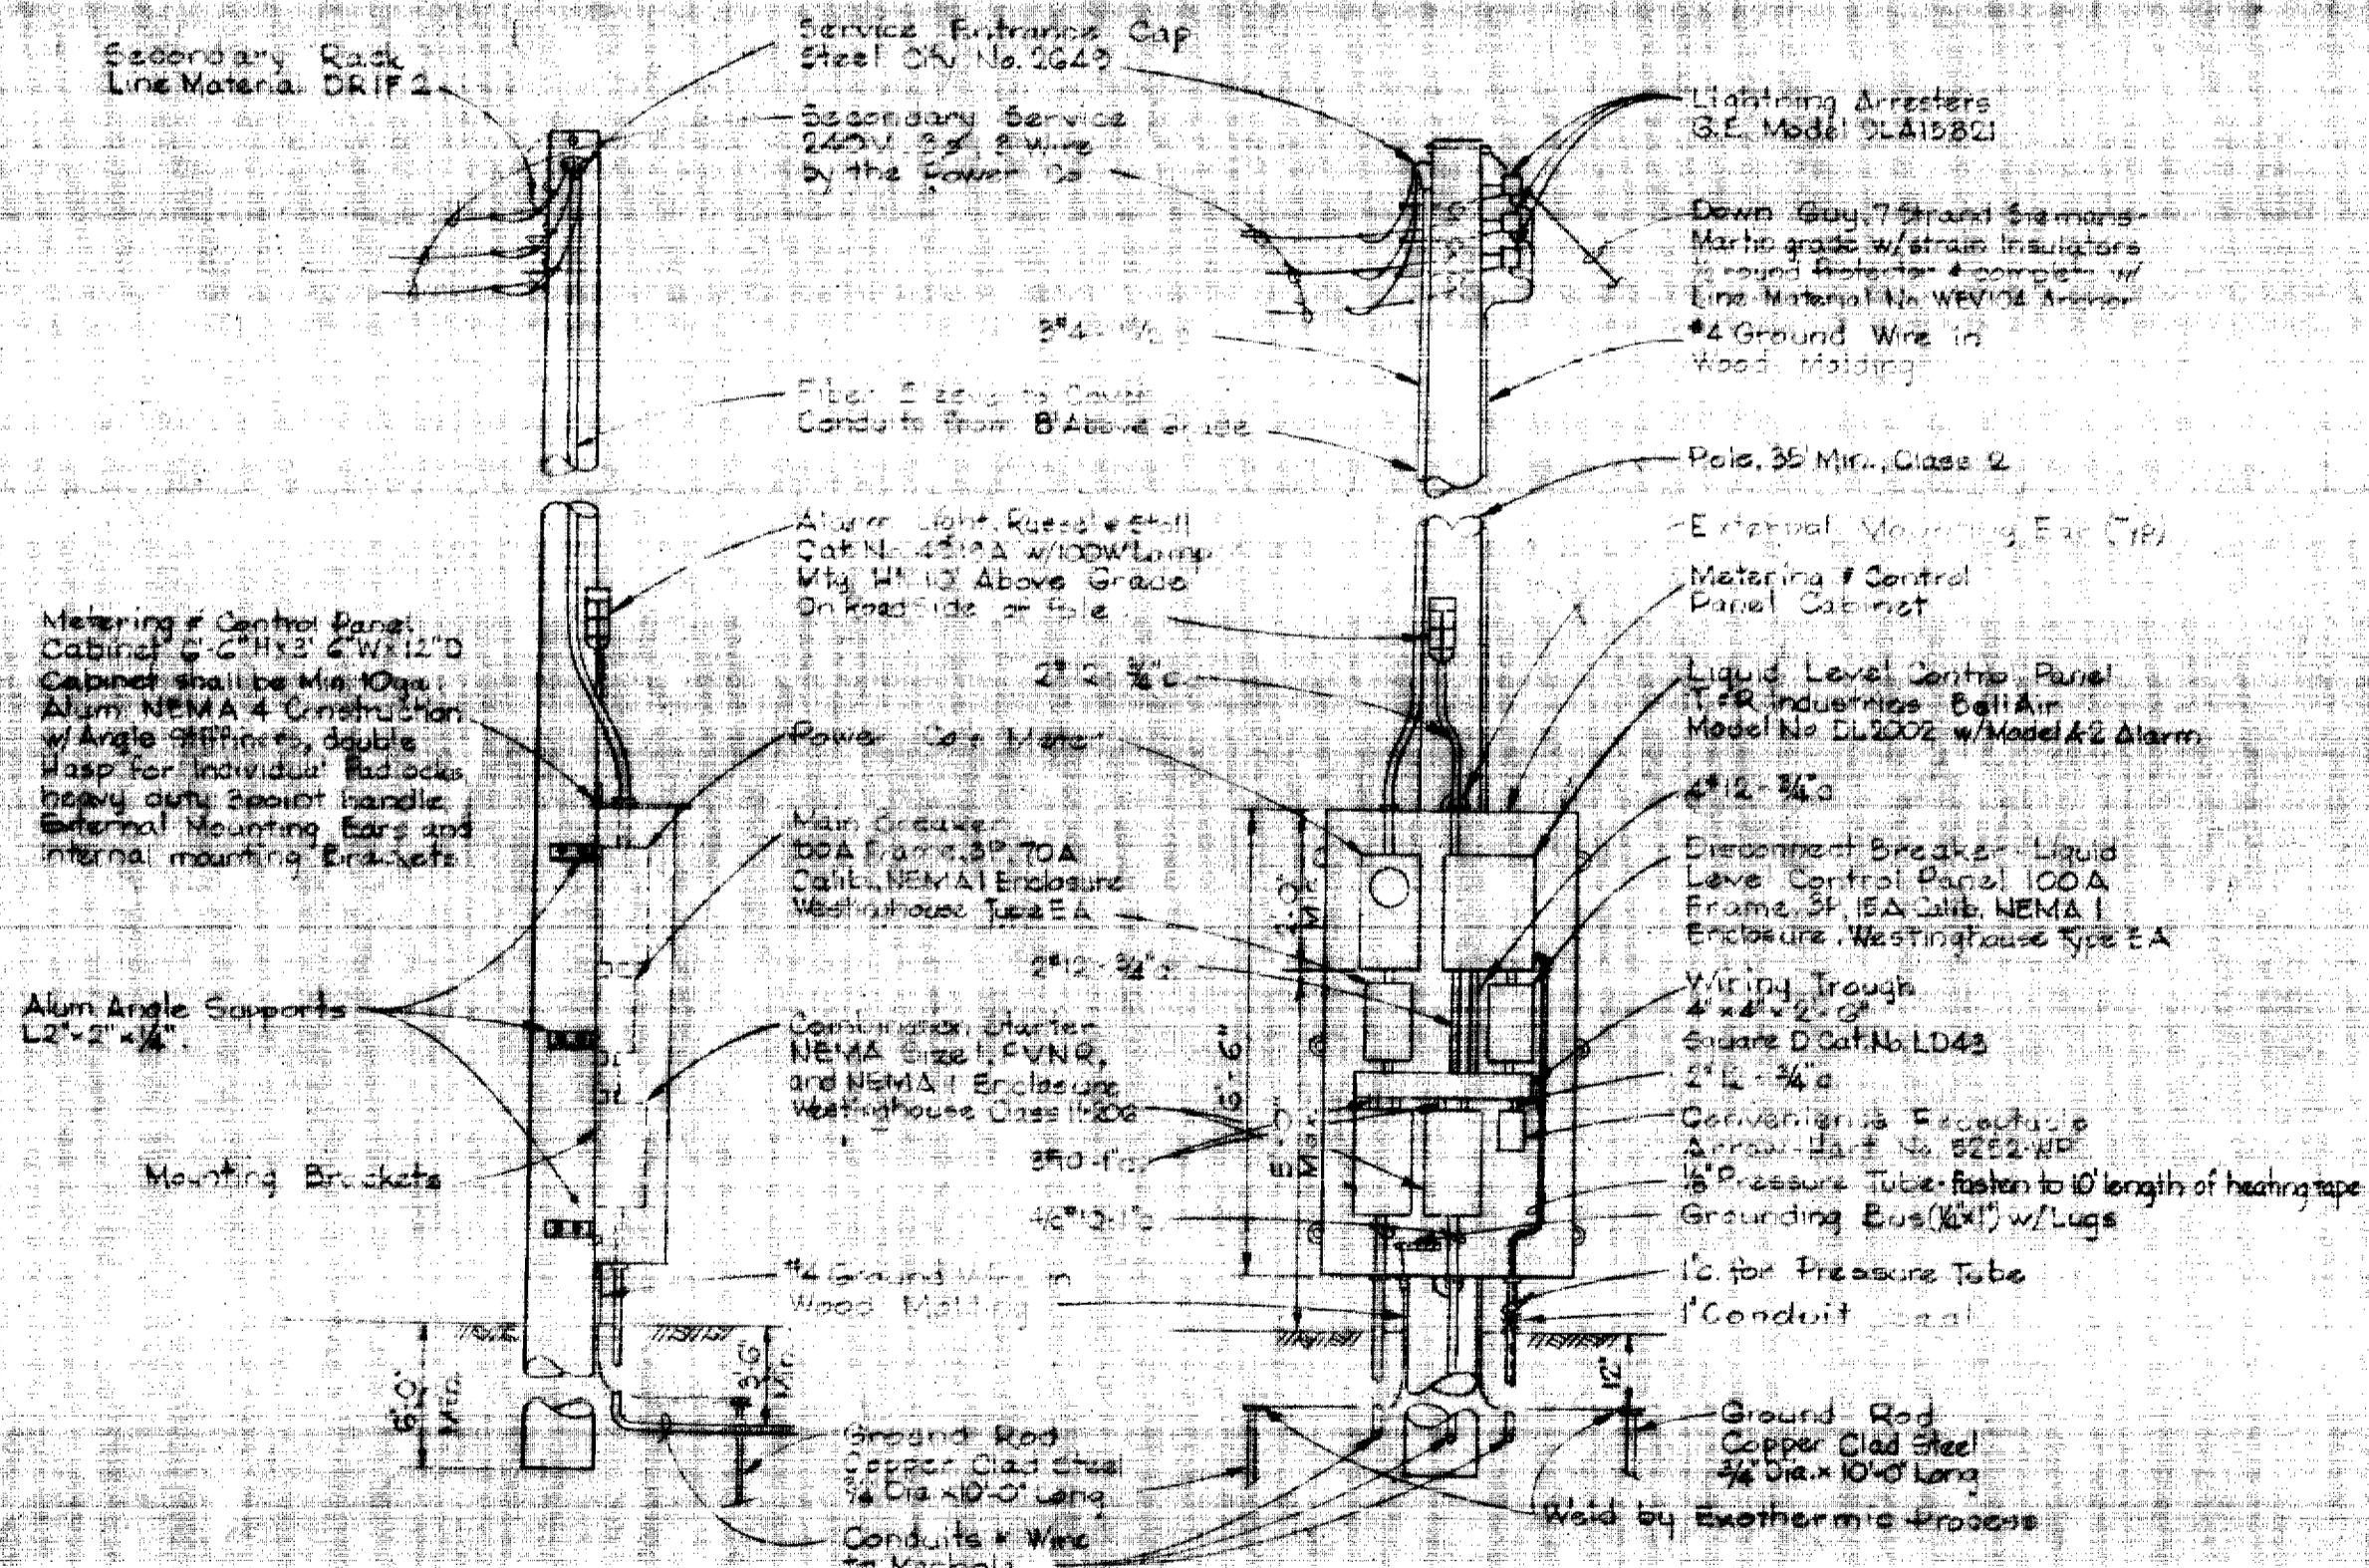 Secondary Rack
Line Material DR1F2
Service Entrance Cap
Steel City No. 2649
Secondary Service
240V 3ø 3 Wire
by the Power Co
Lightning Arresters
G.E. Model 9LA15B21
Down Guy, 7 Strand Siemans-
Martin grade w/strain Insulators
round Protector & complete w/
Line Material No WEV104 Anchor
#4 Ground Wire in
Wood Molding
3#4
Fiber Sleeve to Cover
Conduits from 8' Above Grade
Pole, 35' Min., Class 2
Alarm Light, Russel & Stoll
Cat No. w/100W Lamp
Mtg Ht Above Grade
On Road Side of Pole
External Mounting Ear (Typ)
Metering & Control
Panel Cabinet
Metering & Control Panel
Cabinet 6'-6"H x 3' 6"W x 12"D
Cabinet shall be Min 10ga.
Alum NEMA 4 Construction
w/ Angle Stiffners, double
Hasp for Individual Padlocks
heavy duty 3point handle
External Mounting Ears and
internal mounting Brackets
2#12-¾"c
Liquid Level Control Panel
Industries Bell Air
Model No DL2002 w/Model A2 Alarm
Power Co's Meter
4#12-¾"c
Main Breaker
100A Frame, 3P, 70A
Calib., NEMA 1 Enclosure
Westinghouse Type EA
Disconnect Breaker-Liquid
Level Control Panel 100A
Frame, 3P, 15A Calib. NEMA 1
Enclosure, Westinghouse Type EA
2#12-¾"c
2'-0"
Min.
Alum Angle Supports
L2"x2"x¼"
Wiring Trough
4"x4"x2'-0"
Square D Cat.No. LD43
Combination Starter
NEMA Size 1, FVNR,
and NEMA 1 Enclosure
Westinghouse Class 11-206
6'-6"
2#12-¾"c
Convenience Receptacle
Arrow-Hart No 5252-WP
Max.
3#10-1"c
Mounting Brackets
⅛" Pressure Tube-fasten to 10' length of heating tape
Grounding Bus(¼"x1") w/Lugs
#4 Ground Wire in
Wood Molding
1"c. for Pressure Tube
1" Conduit Seal
6'-0"
Min.
3'6"
Min.
12"
Ground Rod
Copper Clad Steel
¾" Dia. x 10'-0" Long
Ground Rod
Copper Clad Steel
¾" Dia. x 10'-0" Long
Weld by Exothermic Process
Conduits & Wire
to Manhole